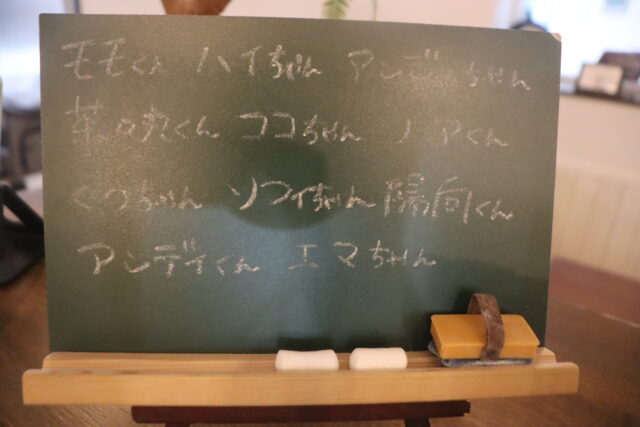 モモくん ハイちゃん アンディちゃん
茶々丸くん ココちゃん ノアくん
くぅちゃん ソフィちゃん 陽向くん
アンディくん エマちゃん